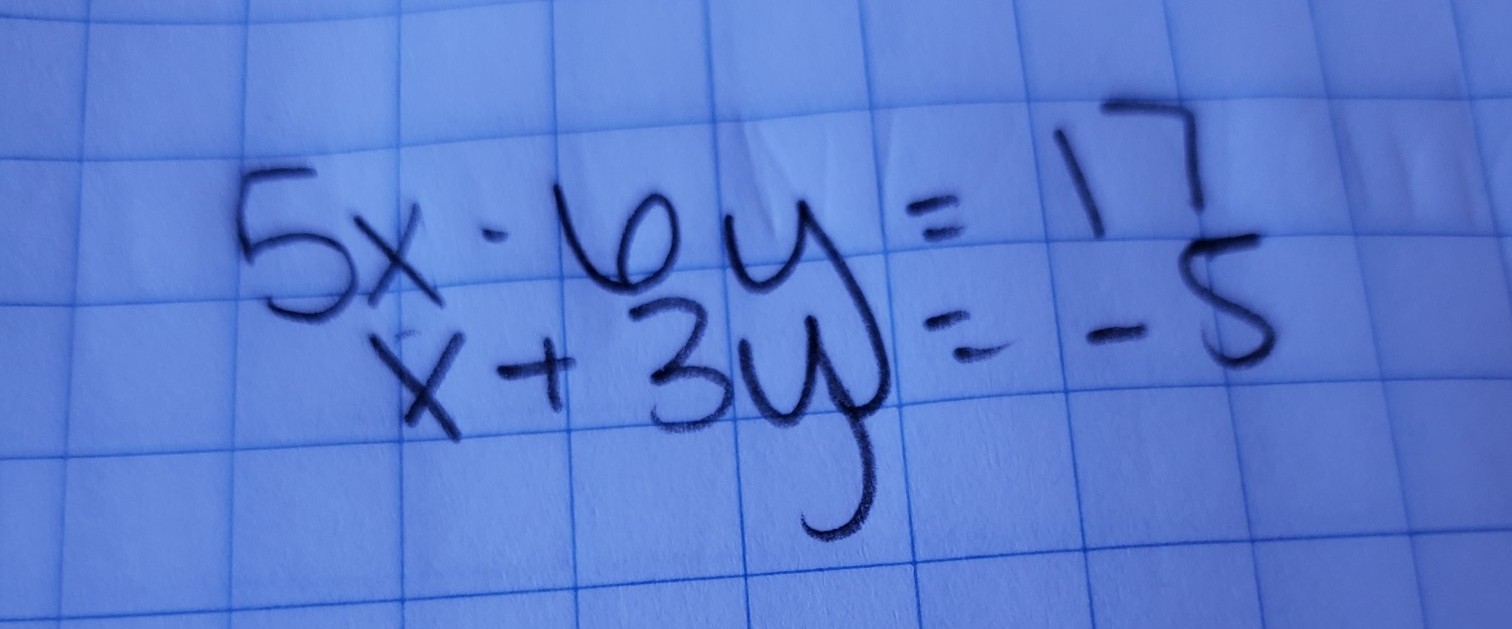 5x - 6y = 17
x + 3y = -5